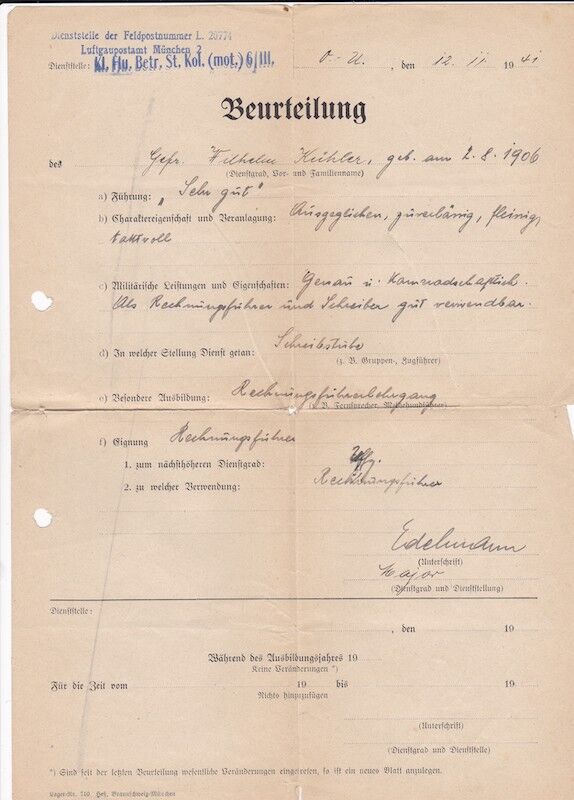 Dienststelle der Feldpostnummer L. 20774
Luftgaupostamt München 2
Dienststelle: Kl. Flu. Betr. St. Kol. (mot.) 6/III.
O.-U., den 12. 11 1941
Beurteilung
des Gefr. Wilhelm Kühler, geb. am 2.8.1906
(Dienstgrad, Vor- und Familienname)
a) Führung: „Sehr gut"
b) Charaktereigenschaft und Veranlagung: Ausgeglichen, zuverlässig, fleissig,
taktvoll
c) Militärische Leistungen und Eigenschaften: Genau u. kameradschaftlich.
Als Rechnungsführer und Schreiber gut verwendbar.
d) In welcher Stellung Dienst getan: Schreibstube
(z. B. Gruppen-, Zugführer)
e) Besondere Ausbildung: Rechnungsführerlehrgang
(z. B. Fernsprecher, Meldehundführer)
f) Eignung Rechnungsführer
1. zum nächsthöheren Dienstgrad: Uffz.
2. zu welcher Verwendung: Rechnungsführer
Edelmann
(Unterschrift)
Major
(Dienstgrad und Dienststellung)
Dienststelle:
, den 19
Während des Ausbildungsjahres 19
Keine Veränderungen *)
Für die Zeit vom 19 bis 19
Nichts hinzuzufügen
(Unterschrift)
(Dienstgrad und Dienststelle)
*) Sind seit der letzten Beurteilung wesentliche Veränderungen eingetreten, so ist ein neues Blatt anzulegen.
Lager-Nr. 710. Heß, Braunschweig-München